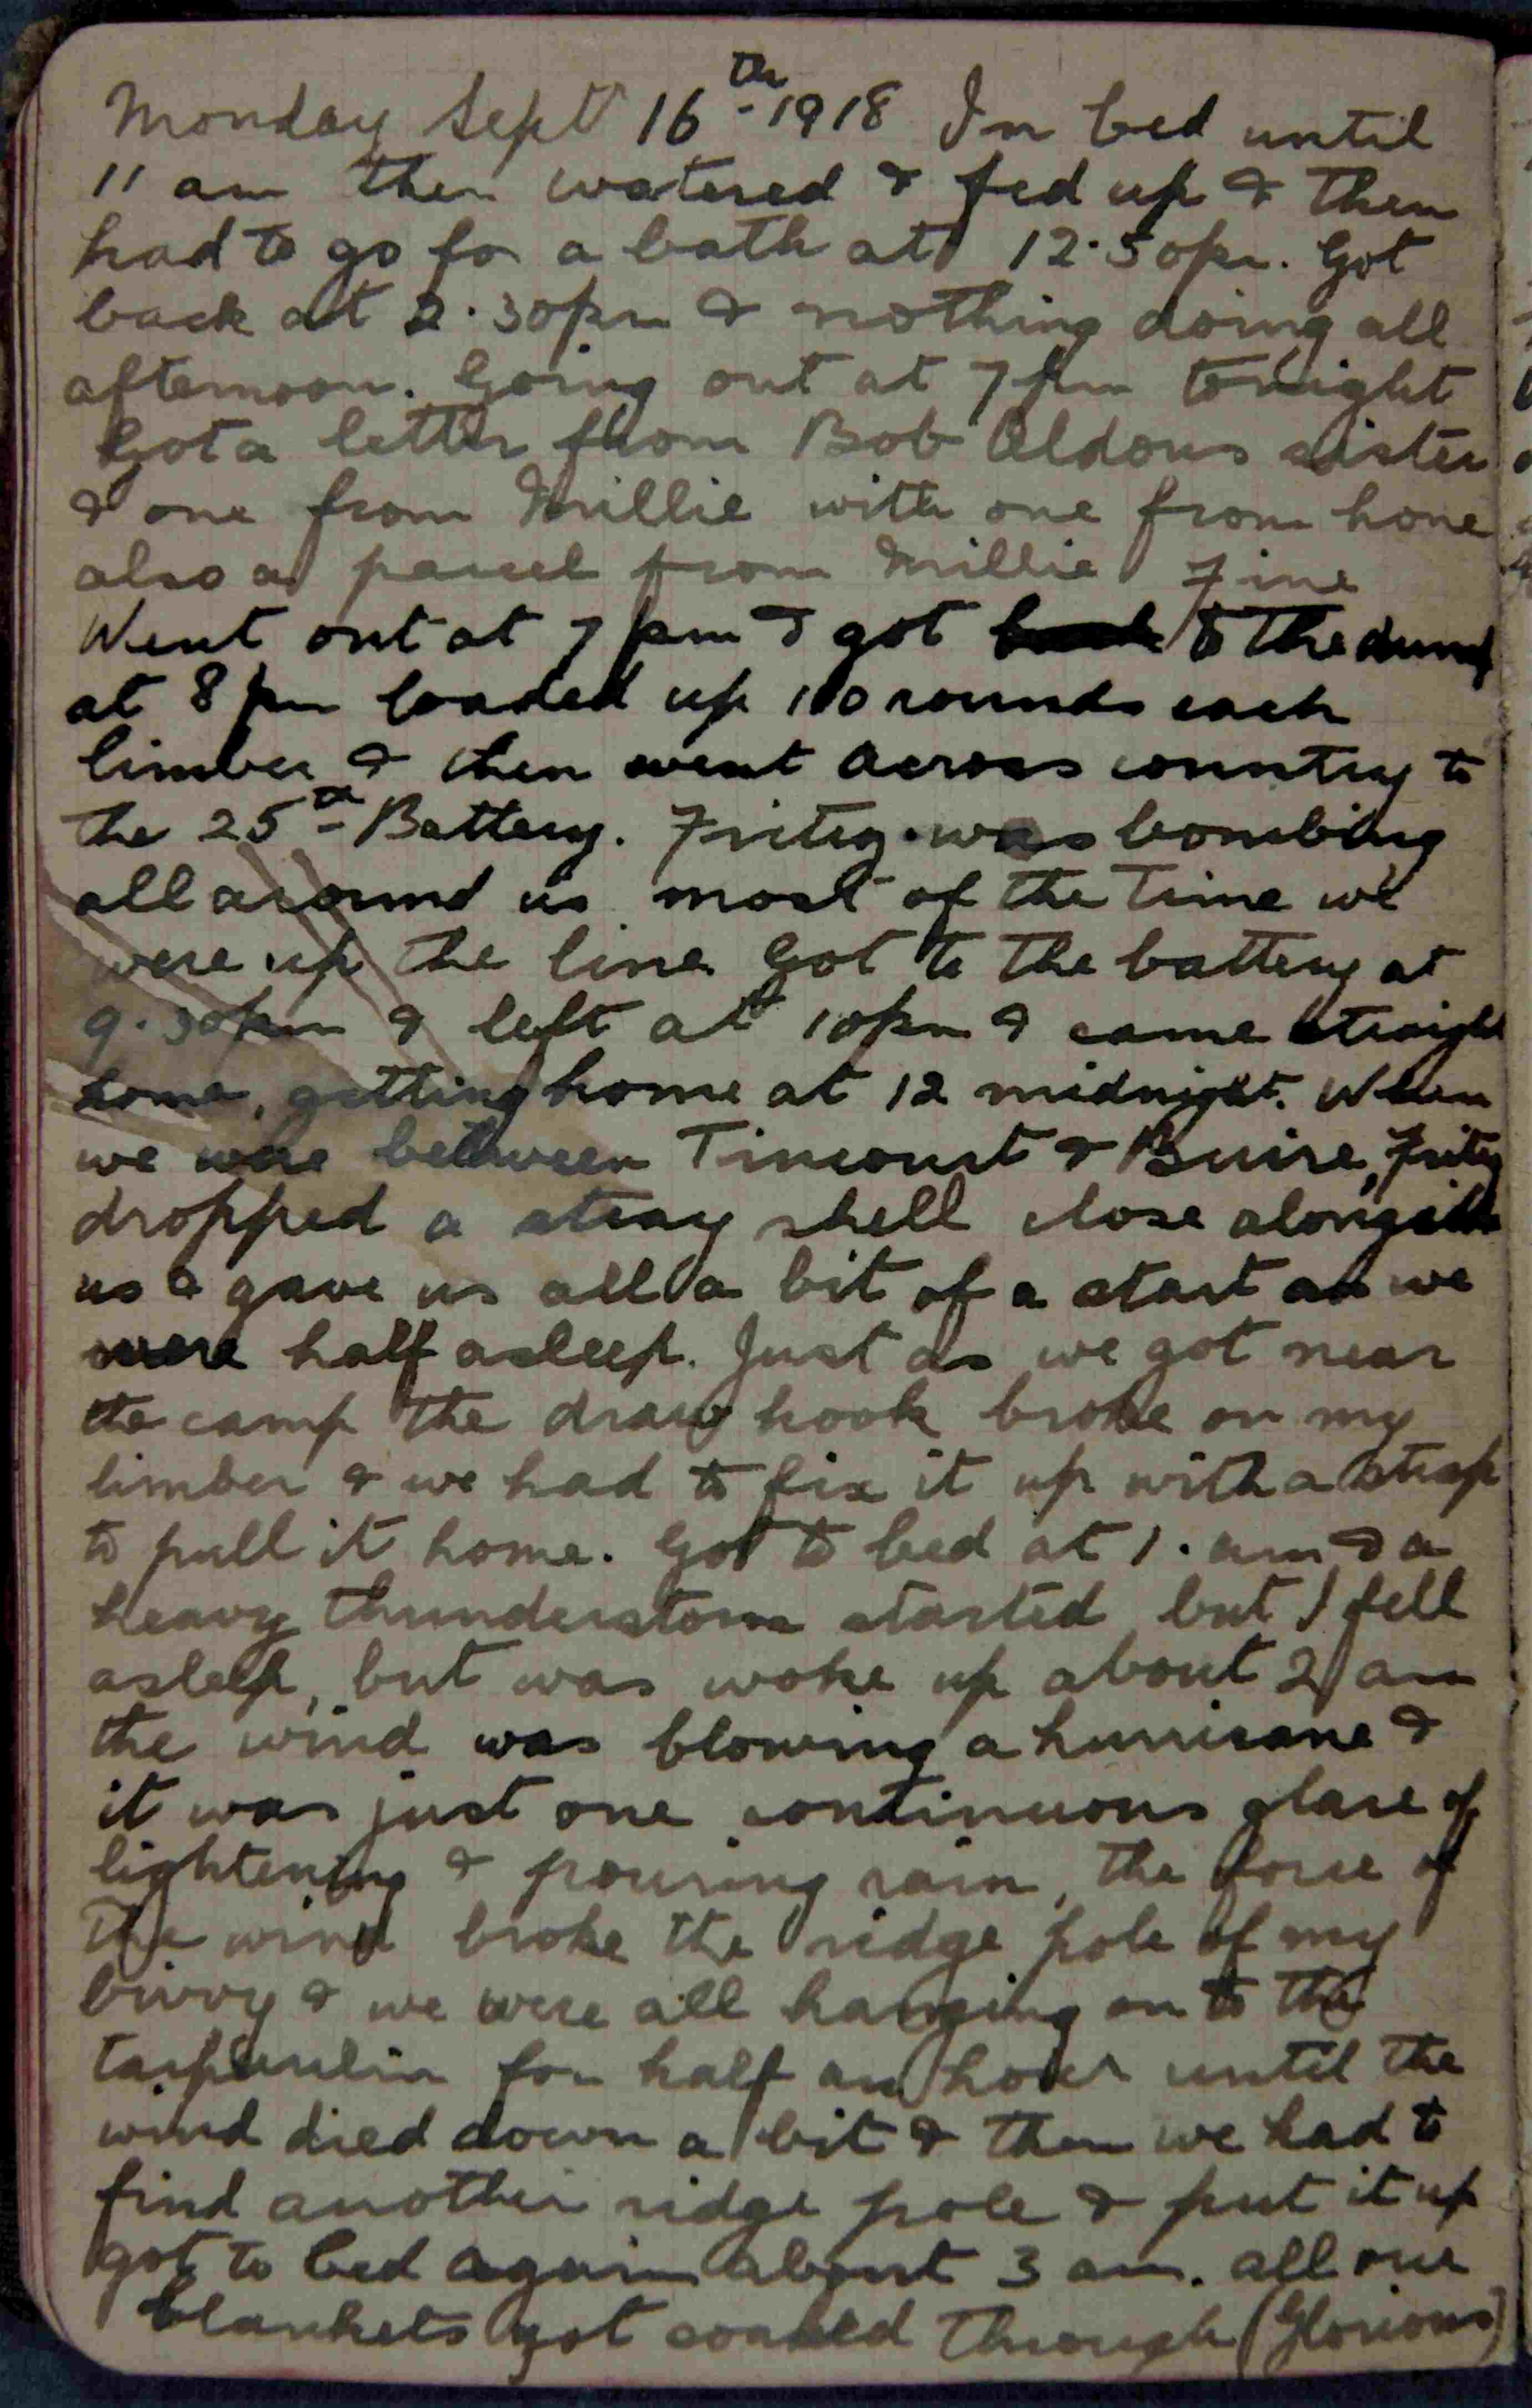 Monday Sept 16th 1918 In bed until
11 am then watered & fed up & then
had to go for a bath at 12.50pm. Got
back at 2.30pm & nothing doing all
afternoon. Going out at 7pm tonight
Got a letter from Bob Aldous sister
& one from Millie with one from home
also a parcel from Millie Fine
Went out at 7 pm & got back to the dump
at 8 pm loaded up 100 rounds each
limber & then went across country to
the 25th Battery. Fritzy was bombing
all around us most of the time we
were up the line Got to the battery at
9.30pm & left at 10pm & came straight
home, getting home at 12 midnight. When
we were between Tincourt & Buire, Fritzy
dropped a stray shell close alongside
us & gave us all a bit of a start as we
were half asleep. Just as we got near
the camp the draw hook broke on my
limber & we had to fix it up with a strap
to pull it home. Got to bed at 1. am & a
heavy thunderstorm started but I fell
asleep, but was woke up about 2 am
the wind was blowing a hurricane &
it was just one continuous glare of
lightening & pouring rain, the force of
the wind broke the ridge pole of my
bivvy & we were all hanging on to the
tarpaulin for half an hour until the
wind died down a bit & then we had to
find another ridge pole & put it up
got to bed again about 3 am. all our
blankets got soaked through (Glorious)